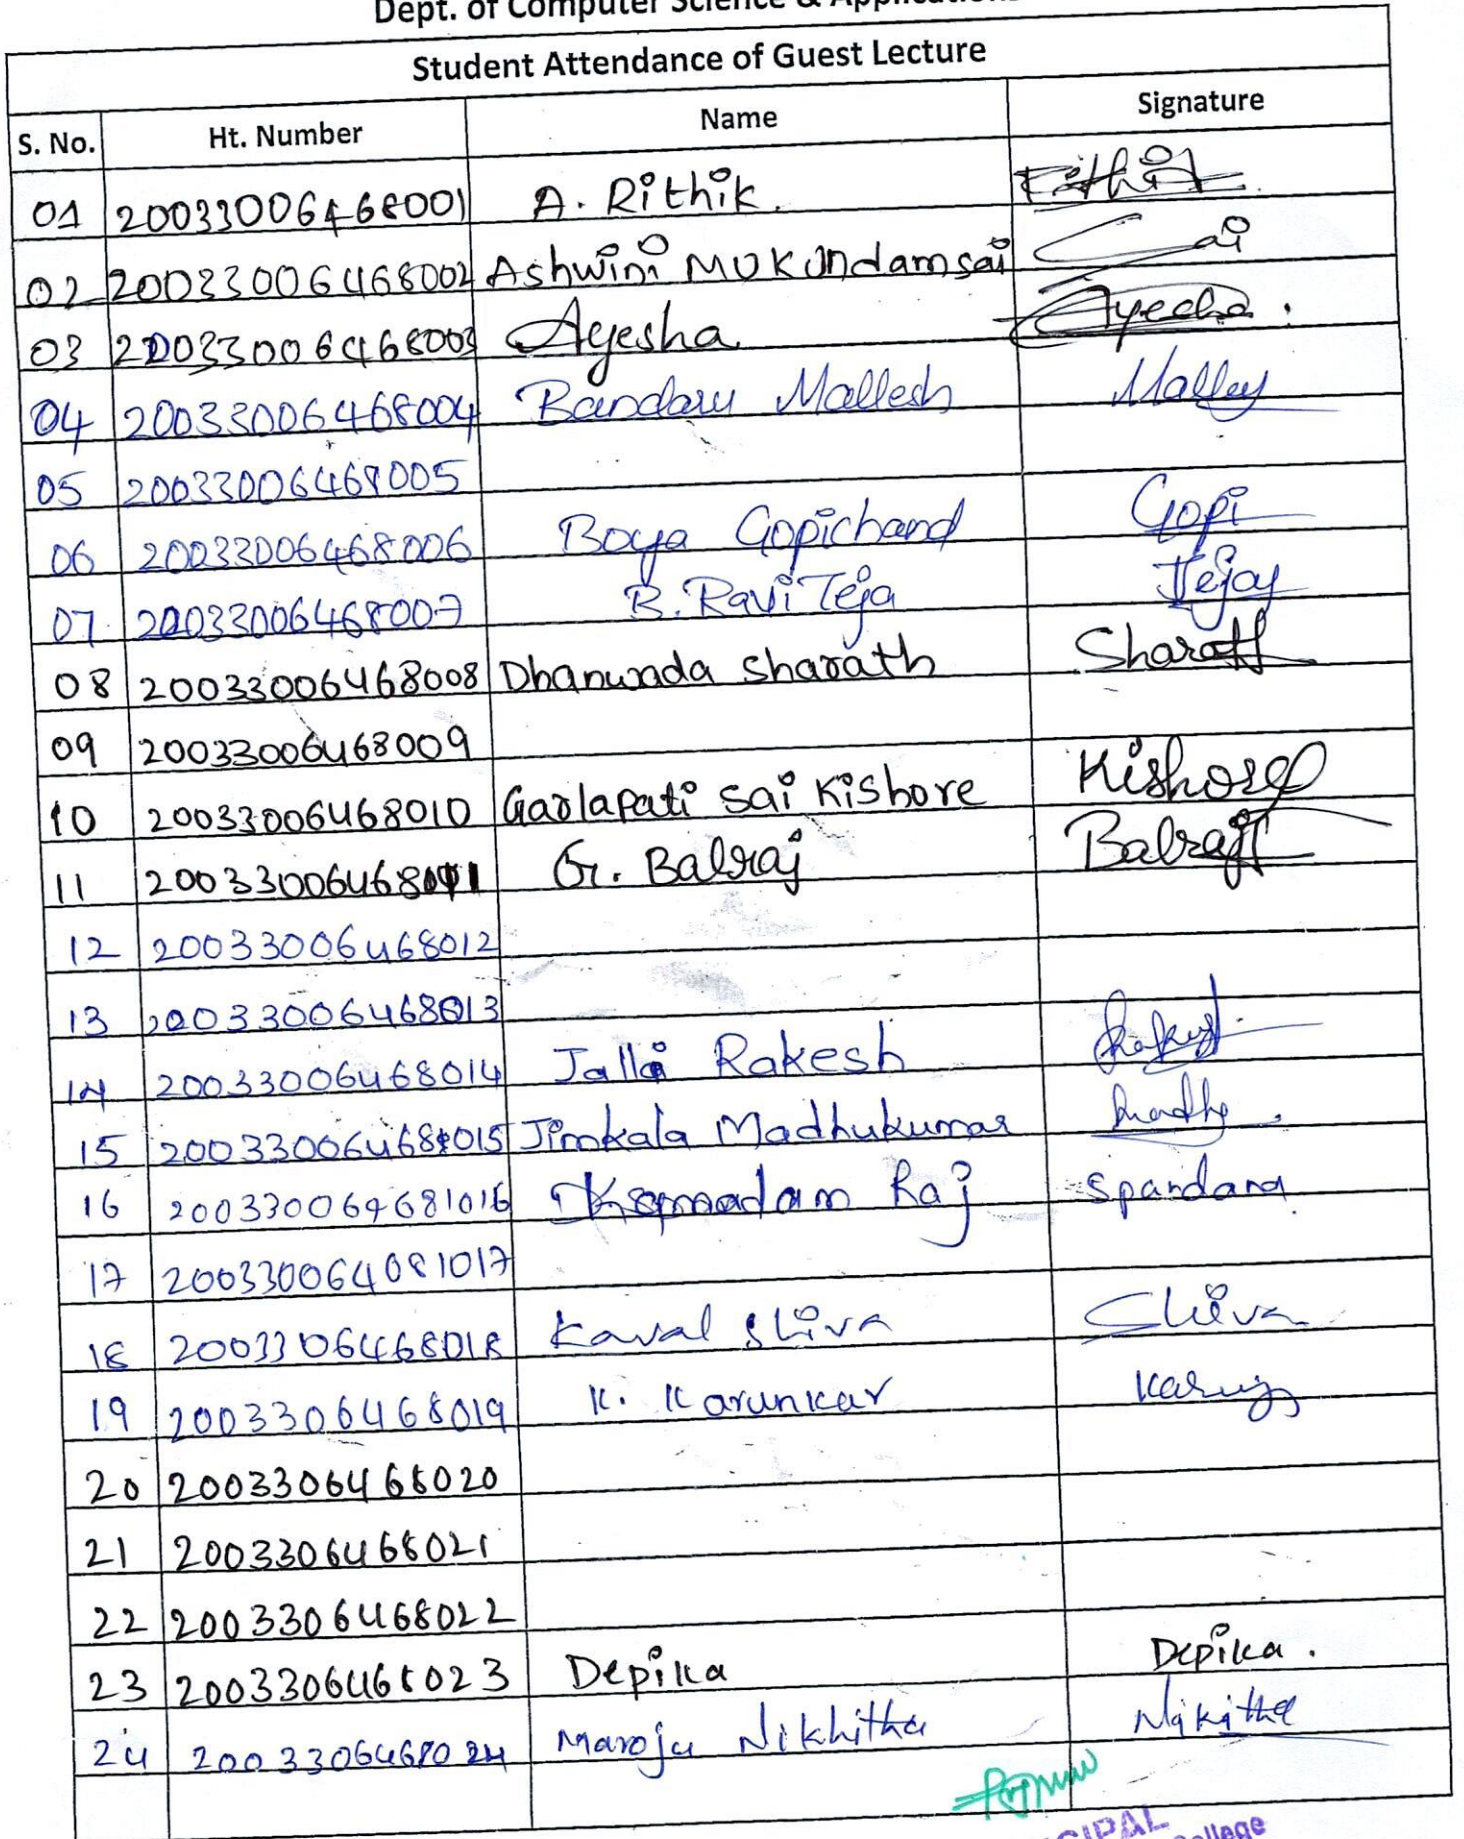 Dept. of Computer Science & Application
Student Attendance of Guest Lecture
S. No. Ht. Number Name Signature
01 20033006468001 A. Rithik. Rithik
02 20033006468002 Ashwini Mukundamsai Sai
03 20033006468003 Ayesha Ayesha.
04 20033006468004 Bandaru Mallesh Malley
05 20033006468005
06 20033006468006 Boya Gopichand Gopi
07 20033006468007 B. Ravi Teja Tejay
08 20033006468008 Dhanwada Sharath Sharath
09 20033006468009
10 20033006468010 Garlapati Sai Kishore Kishore
11 20033006468011 G. Balraj Balraj
12 20033006468012
13 20033006468013
14 20033006468014 Jalla Rakesh Rakesh
15 20033006468015 Jinkala Madhukumar Madhu.
16 200330064681016 Raj Spandana
17 200330064081017
18 2003306468018 Kaval Shiva Shiva
19 2003306468019 K. Karunkar
20 2003306468020
21 2003306468021
22 2003306468022
23 2003306468023 Depika Depika.
24 2003306468024 Maroju Nikhitha Nikitha